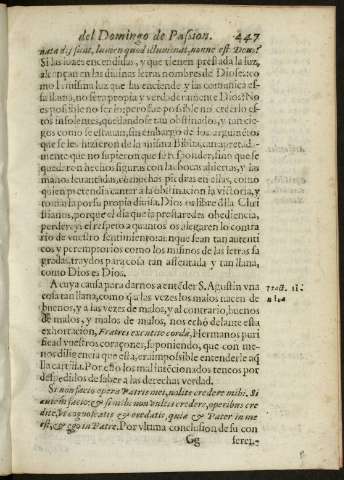 del Domingo de Passion. 447
nata discunt, lumen quod illuminat, nonne est Deus?
Si las luzes encendidas, y que tienen prestada la luz,
alcançan en las diuinas letras nombres de Dioses: co
mo la misma luz que las enciende y las comunica es-
sa llama, no sera propia y verdaderamente Dios? No
es possible no serlo: pero fue possible no creerlo es-
tos insolentes, quedandose tan obstinados, y tan cie-
gos como se estauan, sin embargo de los argumētos
que se les hizieron de la misma Biblia, tan apretada-
mente que no supieron que responder, sino que se
quedaron hechos figuras con las bocas abiertas, y las
manos leuantadas, como las piedras en ellas, como
quien pretendia cantar a la obstinacion la victoria, y
tomarla por su propia diuisa. Dios os libre della Chri
stianos, porque el dia que la prestaredes obediencia,
perdereys el respeto a quantos os alegaren lo contra
rio de vuestro sentimiento: aunque sean tan autenti
cos y peremptorios como los mismos de las letras sa
gradas, traydos para cosa tan assentada y tan llana,
como Dios es Dios.
A cuya causa para darnos a entēder S. Agustin vna
cosa tan llana, como q̃ a las vezes los malos nacen de
buenos, y a las vezes de malos, y al contrario, buenos
de malos, y malos de malos, nos echó delante esta
exhortacion, Fratres excutite corda, Hermanos puri
ficad vuestros coraçones, suponiendo, que con me-
nos diligencia que esta, era impossible entenderle aq̃
lla cartilla. Por esso los mal aficionados teneos por
despedidos de saber a las derechas verdad.
Si non facio opera Patris mei, nolite credere mihi. Si
autem facio, & si mihi non vultis credere, operibus cre
dite, vt cognoscatis & credatis, quia & Pater in me
est, & ego in Patre. Por vltima conclusion de su con
Gg